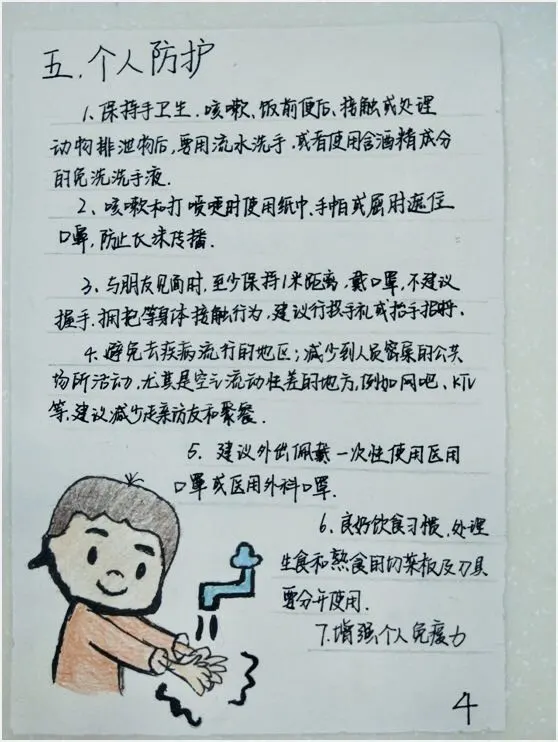 五.个人防护
1、保持手卫生.咳嗽、饭前便后、接触或处理
动物排泄物后,要用流水洗手.或者使用含酒精成分
的免洗洗手液.
2、咳嗽和打喷嚏时使用纸巾、手帕或屈肘遮住
口罩,防止飞沫传播.
3、与朋友见面时,至少保持1米距离,戴口罩,不建议
握手.拥抱等身体接触行为,建议行拱手礼或抬手招呼.
4.避免去疾病流行的地区;减少到人员密集的公共
场所活动,尤其是空气流动性差的地方,例如网吧、KTV
等.建议减少走亲访友和聚餐.
5. 建议外出佩戴一次性使用医用
口罩或医用外科口罩.
6、良好饮食习惯.处理
生食和熟食用切菜板及刀具
要分开使用.
7.增强个人免疫力
4